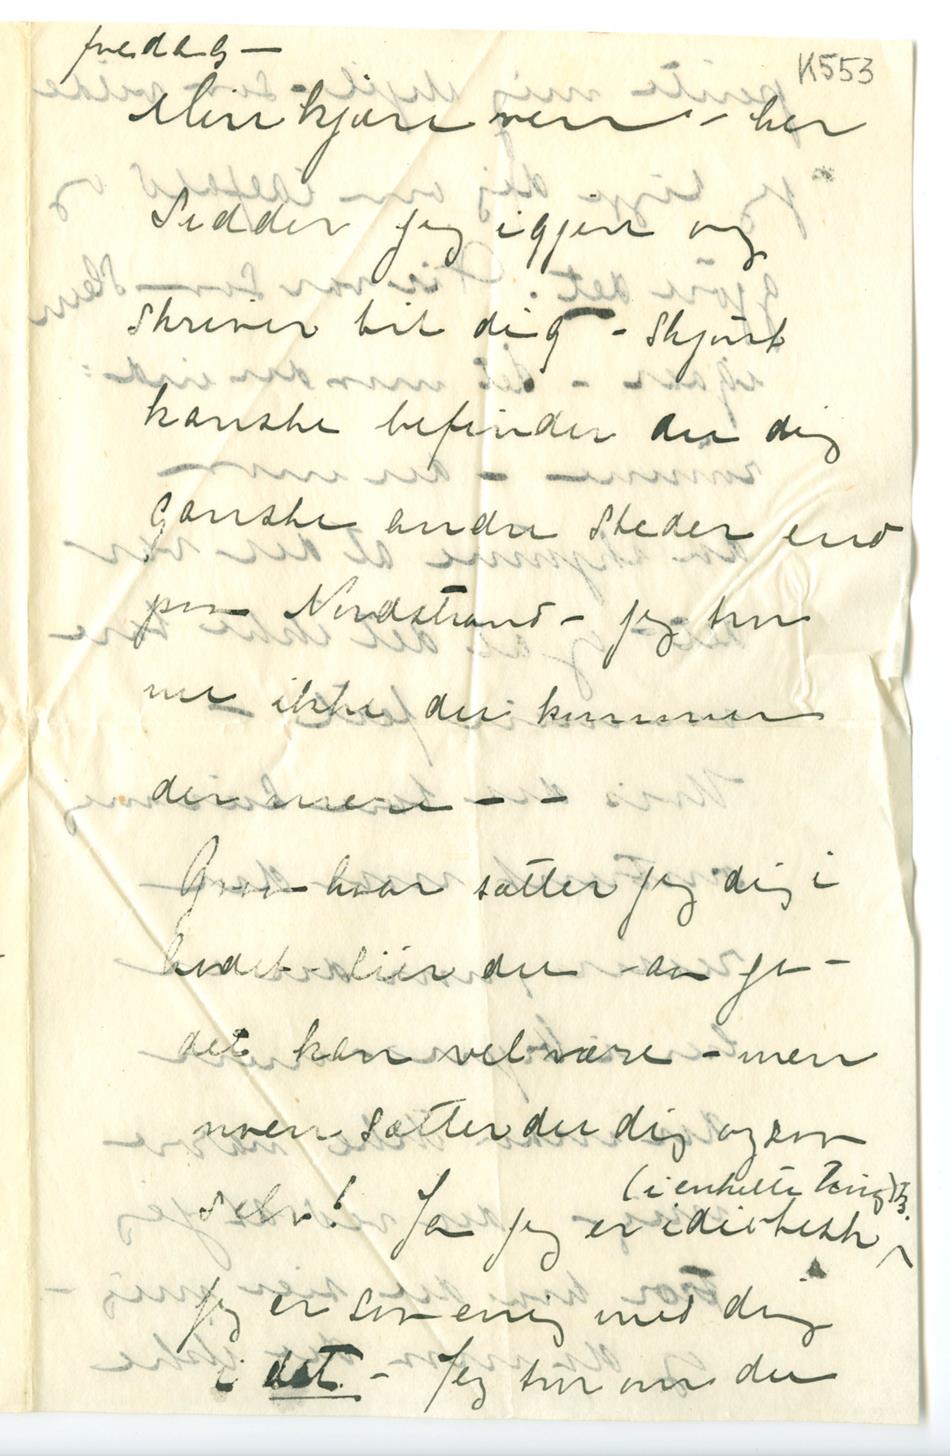 fredag —
K553
Min kjære ven – her
sidder jeg igjen og
skriver til dig – skjønt
kanske befinder du dig
ganske andre steder end
paa Nordstrand – jeg tror
nu ikke du kommer
der mere – –
Gud hvor sætter jeg dig i
hodet – sier du – aa ja –
det kan vel være – men
noen sætter du dig ogsaa
selv! Ja jeg er idiotisk
(i enkelte Ting)
Jeg er saa enig med dig
i det – Jeg tror om du